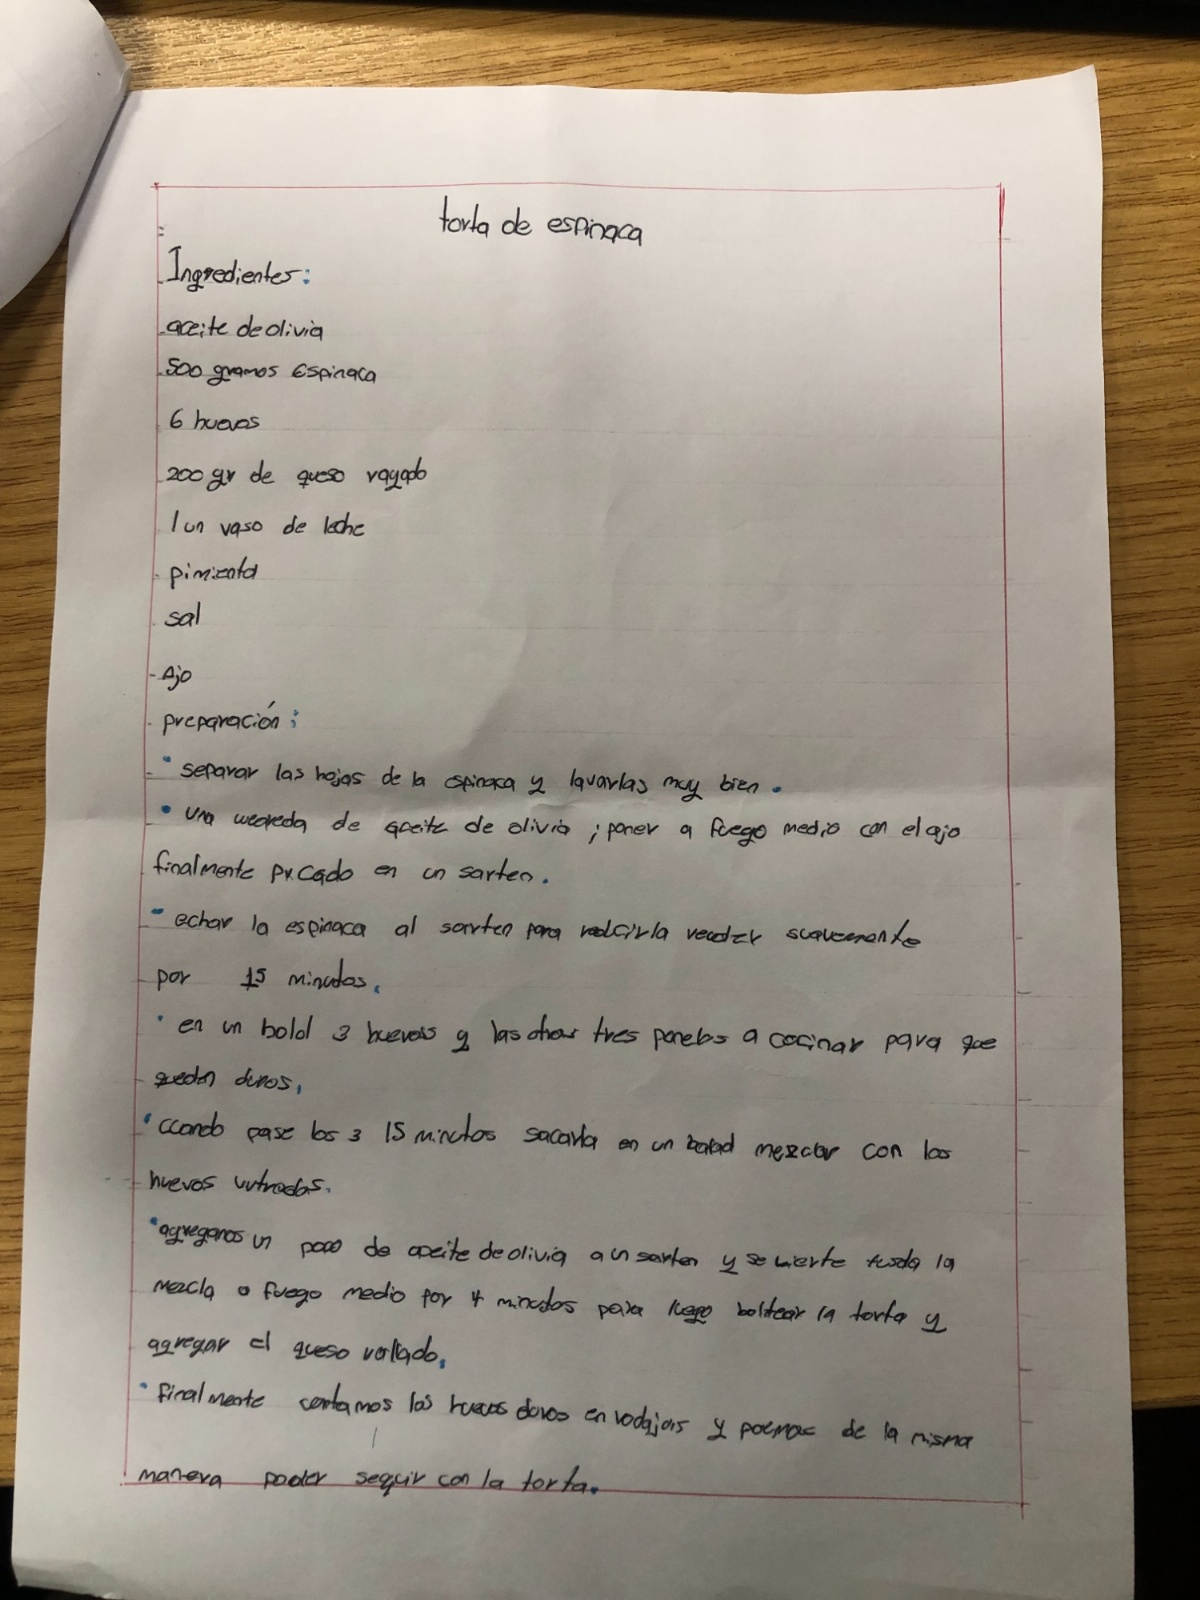 torta de espinaca
Ingredientes:
aceite de olivia
500 gramos Espinaca
6 huevos
200 gr de queso rayado
1 un vaso de leche
pimienta
sal
Ajo
preparación:
separar las hojas de la espinaca y lavarlas muy bien.
una de aceite de olivia ; poner a fuego medio con el ajo
finalmente picado en un sarten.
echar la espinaca al sarten para suavemente
por 15 minutos.
en un bold 3 huevos y las otras tres ponelos a cocinar para que
quedan duros.
cuando pase los 3 15 minutos sacarla en un mezclar con los
huevos
agregamos un poco de aceite de olivia a un sarten y se vierte la
mezcla a fuego medio por 4 minutos para luego boltear la torta y
agregar el queso rallado.
finalmente cortamos los huevos duros en rodajas y de la misma
manera poder seguir con la torta.